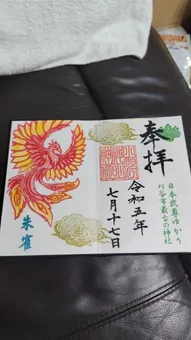 奉拝
日本武尊ゆかり
刈谷市最古の神社
令和五年
七月十七日
朱雀